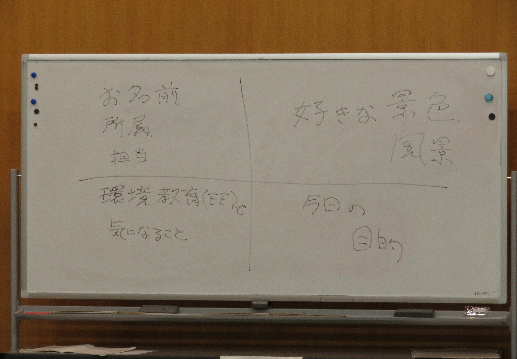 お名前
所属
担当
好きな景色、
風景
環境教育(EE)で
気になること
今日の
目的